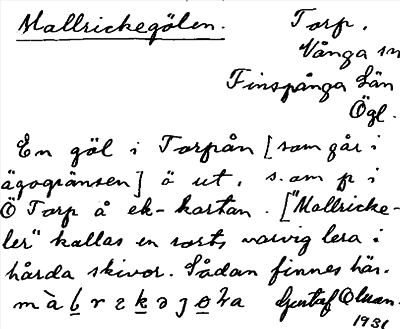 Mallrickegölen. Torp,
Vånga sn
Finspånga län
Ögl.
En göl i Torpån [som går i
ägogränsen] ö ut, s. om p i
Ö Torp å ek-kartan. ["Mallricke-
ler" kallas en sorts varvig lera i
hårda skivor. Sådan finnes här.
Gustaf
1931